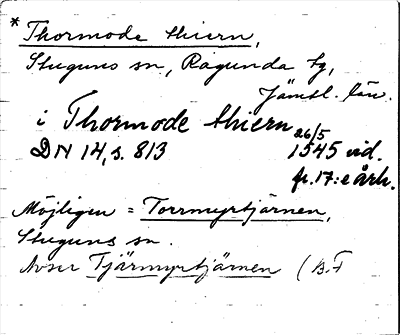 * Thormode thiern,
Stuguns sn, Ragunda tg,
Jämtl. län.
i Thormode thiern 26/5
DN 14, s. 813 1545 vid.
fr. 17:e årh.
Möjligen = Torrmyrtjärnen,
Stuguns sn.
Avser Tjärmyrtjärnen (B.F